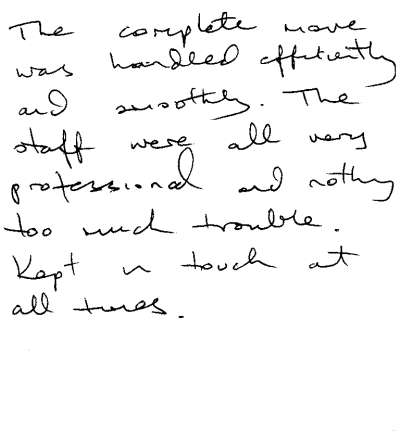 The complete move
was handled efficiently
and smoothly. The
staff were all very
professional and nothing
too much trouble.
Kept in touch at
all times.